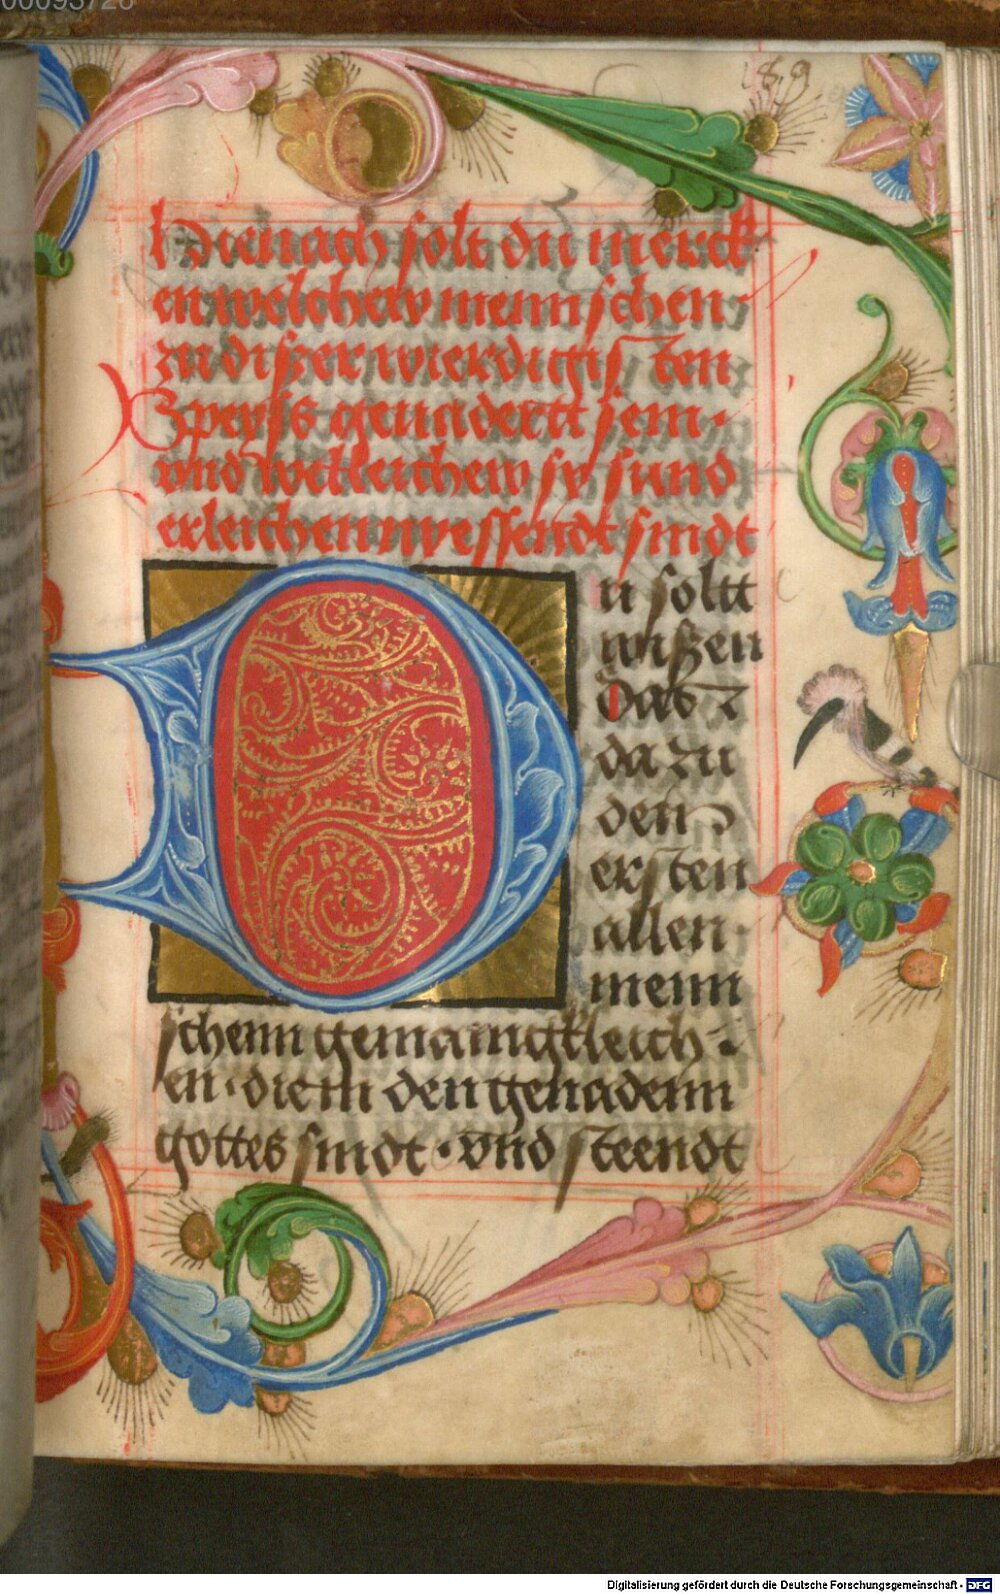 00093726
189
Hienach solt du merck
en welchew mennschen
zu dißer wierdigisten
Speyss genadertt sein.
vnd welleichew sy sund
erleichenn wessendt sindt
Du soltt
wißen
das
da zu
den
ersten
allen
menn
schenn gemaingkleich
en. die in den genadenn
gottes sindt. vnd steendt
Digitalisierung gefördert durch die Deutsche Forschungsgemeinschaft - DFG